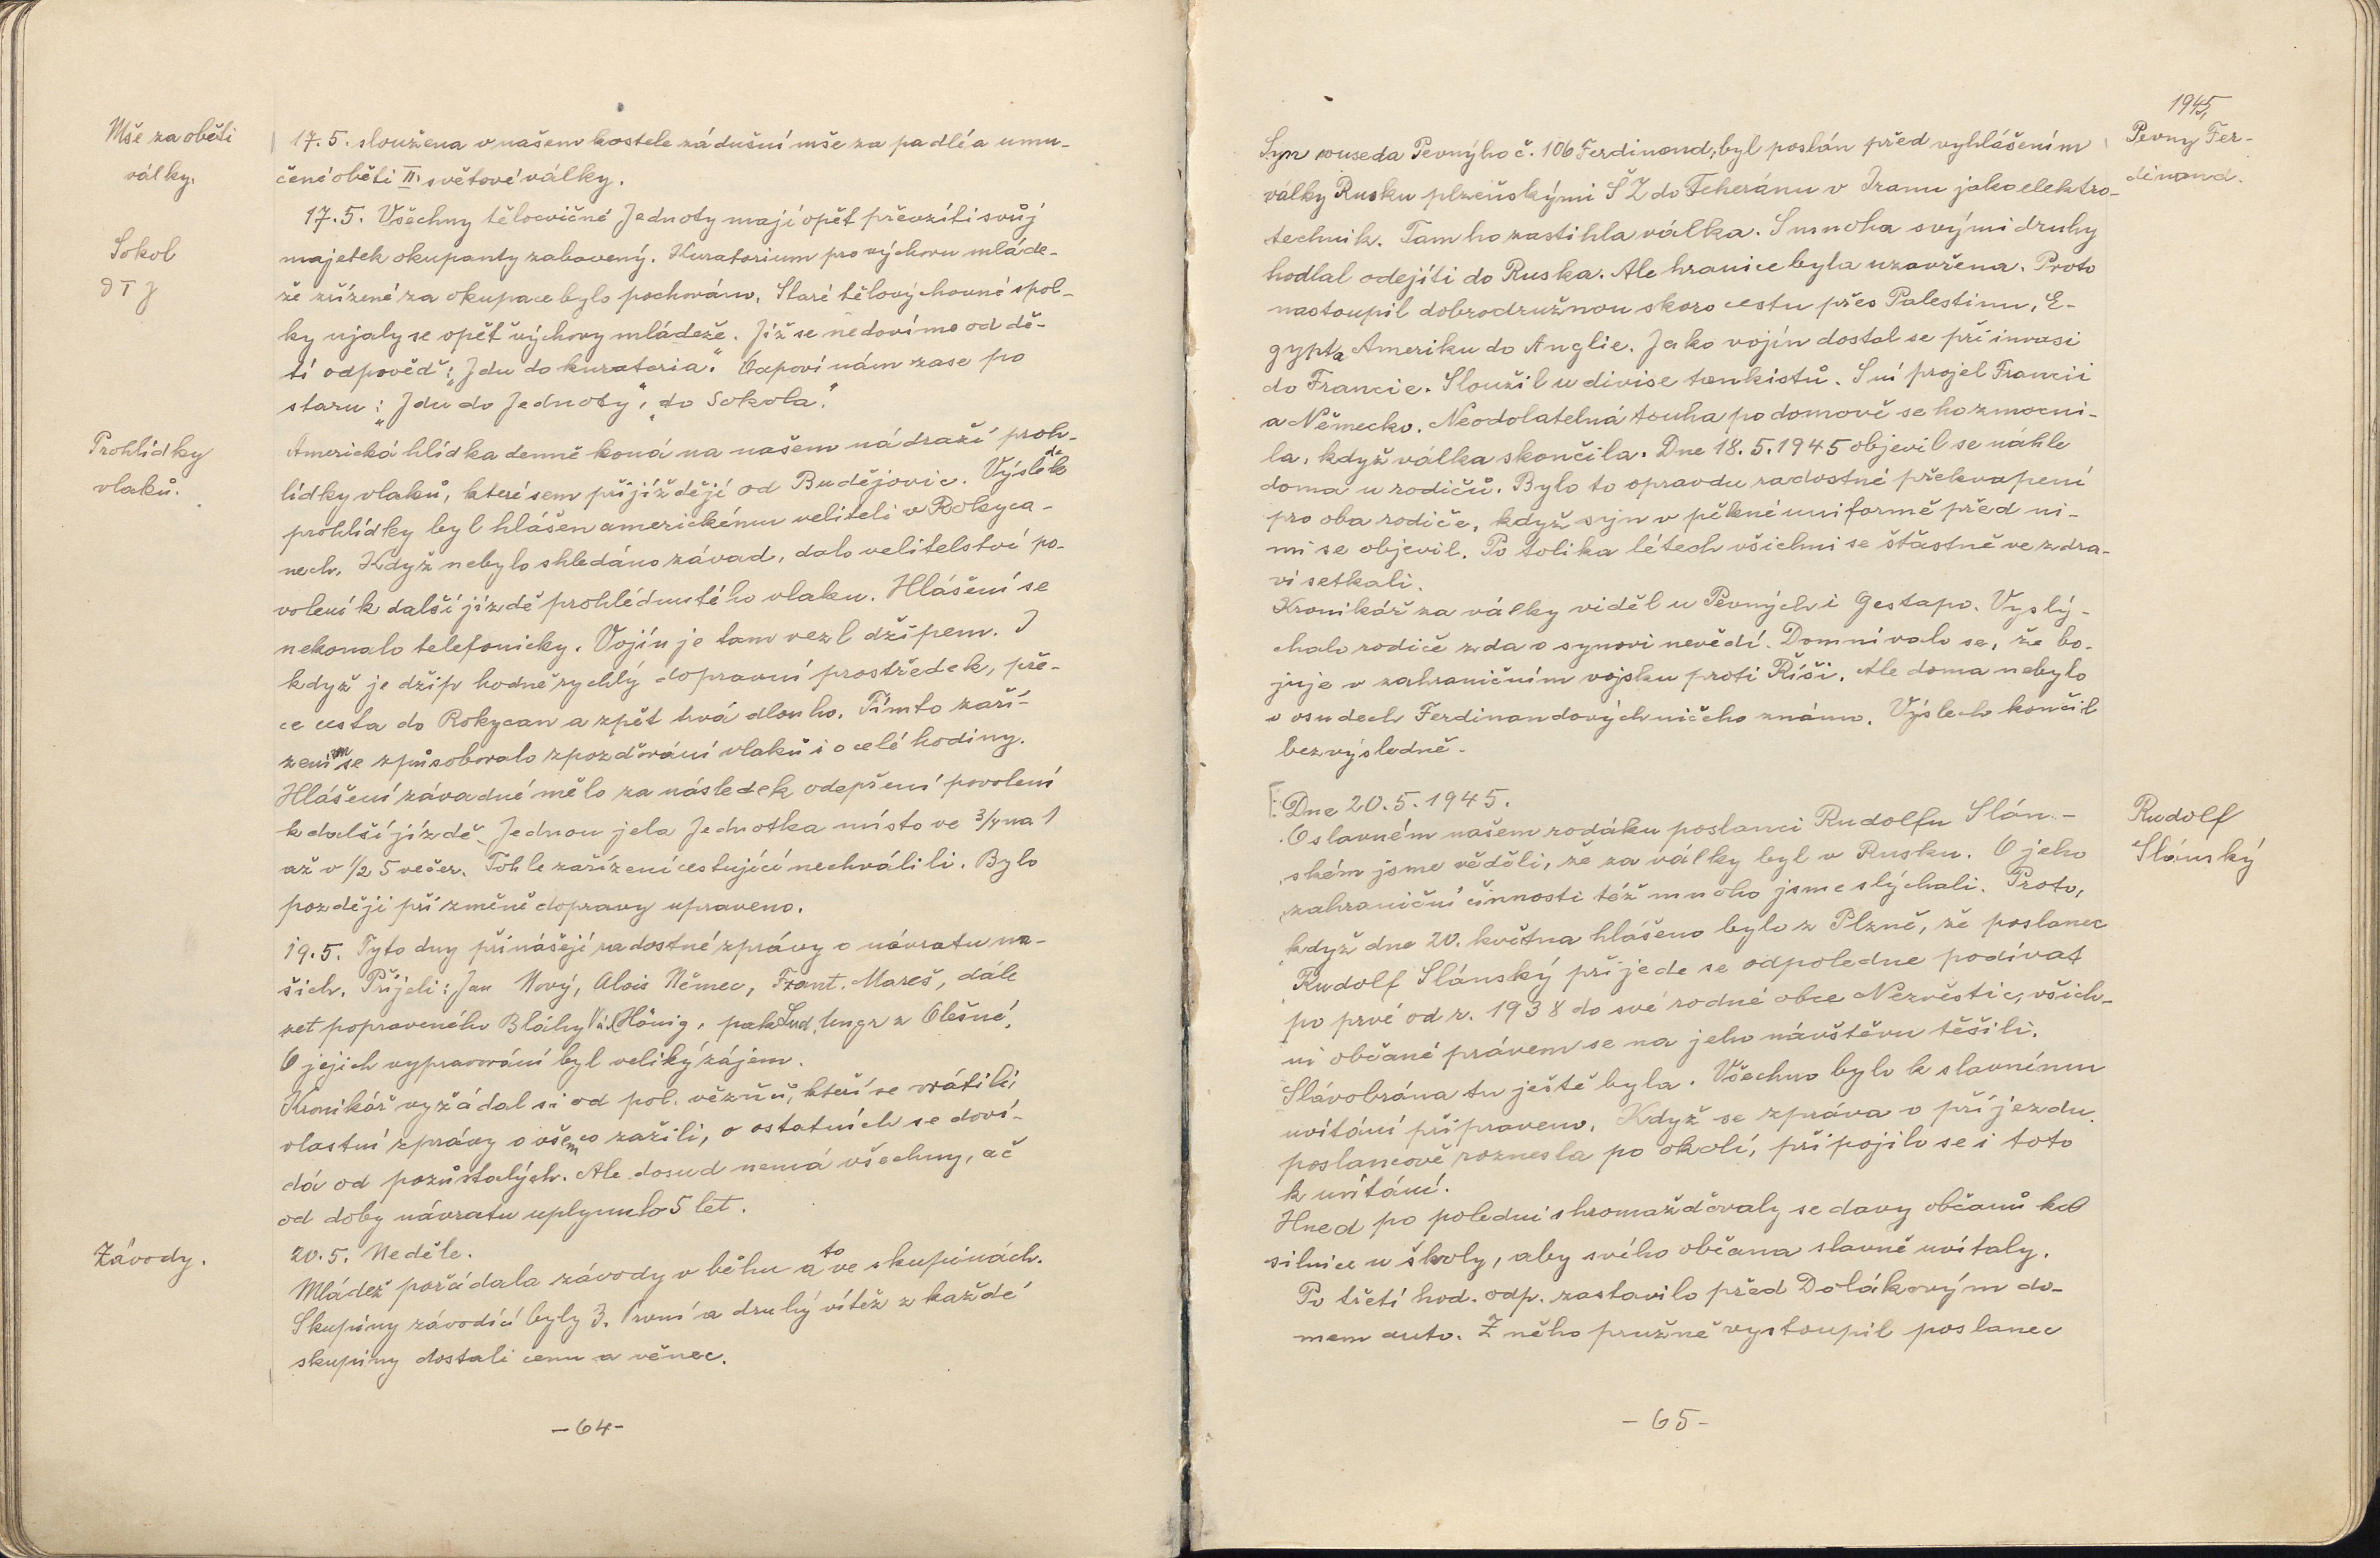 Mše za oběti
války.
17.5. sloužena v našem kostele zádušní mše za padlé a umu-
čené oběti II. světové války.
Sokol
DTJ
17.5. Všechny tělocvičné Jednoty mají opět převzíti svůj
majetek okupanty zabavený. Kuratorium pro výchovu mláde-
že zřízené za okupace bylo pochováno. Staré tělovýchovné spol-
ky ujaly se opět výchovy mládeže. Již se nedovíme od dě-
tí odpověď: „Jdu do kuratoria." Odpoví nám zase po
staru: „Jdu do Jednoty", „do Sokola."
Prohlídky
vlaků.
Americká hlídka denně koná na našem nádraží proh-
lídky vlaků, které sem přijíždějí od Budějovic. Výsledek
prohlídky byl hlášen americkému veliteli v Rokyca-
nech. Když nebylo shledáno závad, dalo velitelství po-
volení k další jízdě prohlédnutého vlaku. Hlášení se
nekonalo telefonicky. Vojín je tam vezl džípem. I
když je džíp hodně rychlý dopravní prostředek, pře-
ce cesta do Rokycan a zpět trvá dlouho. Tímto zaří-
zením se způsobovalo zpozďování vlaků i o celé hodiny.
Hlášení závadné mělo za následek odepření povolení
k další jízdě. Jednou jela Jednotka místo ve 3/4 na 1
až v 1/2 5 večer. Tohle zařízení cestující nechválili. Bylo
později při změně dopravy upraveno.
19.5. Tyto dny přinášejí radostné zprávy o návratu na-
šich. Přijeli: Jan Nový, Alois Němec, Frant. Mareš, dále
zeť popraveného Bláhy Hönig, pak Lud. Ungr z Olešné.
O jejich vypravování byl veliký zájem.
Kronikář vyžádal si od pol. vězňů, kteří se vrátili,
vlastní zprávy o všem co zažili, o ostatních se doví-
dá od pozůstalých. Ale dosud nemá všechny, ač
od doby návratu uplynulo 5 let.
Závody.
20.5. Neděle.
Mládež pořádala závody v běhu a to ve skupinách.
Skupiny závodící byly 3. První a druhý vítěz z každé
skupiny dostali cenu a věnec.
-64-
1945,
Pevny Fer-
dinand.
Syn souseda Pevnýho č. 106 Ferdinand, byl poslán před vyhlášením
války Rusku plzeňskými ŠZ do Teheránu v Iranu jako elektro-
technik. Tam ho zastihla válka. S mnoha svými druhy
hodlal odejíti do Ruska. Ale hranice byla uzavřena. Proto
nastoupil dobrodružnou skoro cestu přes Palestinu, E-
gypt a Ameriku do Anglie. Jako vojín dostal se při invasi
do Francie. Sloužil u divise tankistů. S ní projel Francii
a Německo. Neodolatelná touha po domově se ho zmocni-
la, když válka skončila. Dne 18.5.1945 objevil se náhle
doma u rodičů. Bylo to opravdu radostné překvapení
pro oba rodiče, když syn v pěkné uniformě před ni-
mi se objevil. Po tolika létech všichni se šťastně ve zdra-
ví setkali.
Kronikář za války viděl u Pevných i Gestapo. Vyslý-
chalo rodiče zda o synovi nevědí. Domnívalo se, že bo-
juje v zahraničním vojsku proti Říši. Ale doma nebylo
o osudech Ferdinandových ničeho známo. Výslech končil
bezvýsledně.
Rudolf
Slánský
Dne 20.5.1945.
O slavném našem rodáku poslanci Rudolfu Slán-
ském jsme věděli, že za války byl v Rusku. O jeho
zahraniční činnosti též mnoho jsme slýchali. Proto,
když dne 20. května hlášeno bylo z Plzně, že poslanec
Rudolf Slánský přijede se odpoledne podívat
po prvé od r. 1938 do své rodné obce Nezvěstic, všich-
ni občané právem se na jeho návštěvu těšili.
Slávobrána tu ještě byla. Všechno bylo k slavnému
uvítání připraveno. Když se zpráva o příjezdu
poslancově roznesla po okolí, připojilo se i toto
k uvítání.
Hned po poledni shromažďovaly se davy občanů kol
silnice u školy, aby svého občana slavně uvítaly.
Po třetí hod. odp. zastavilo před Dolákovým do-
mem auto. Z něho pružně vystoupil poslanec
-65-